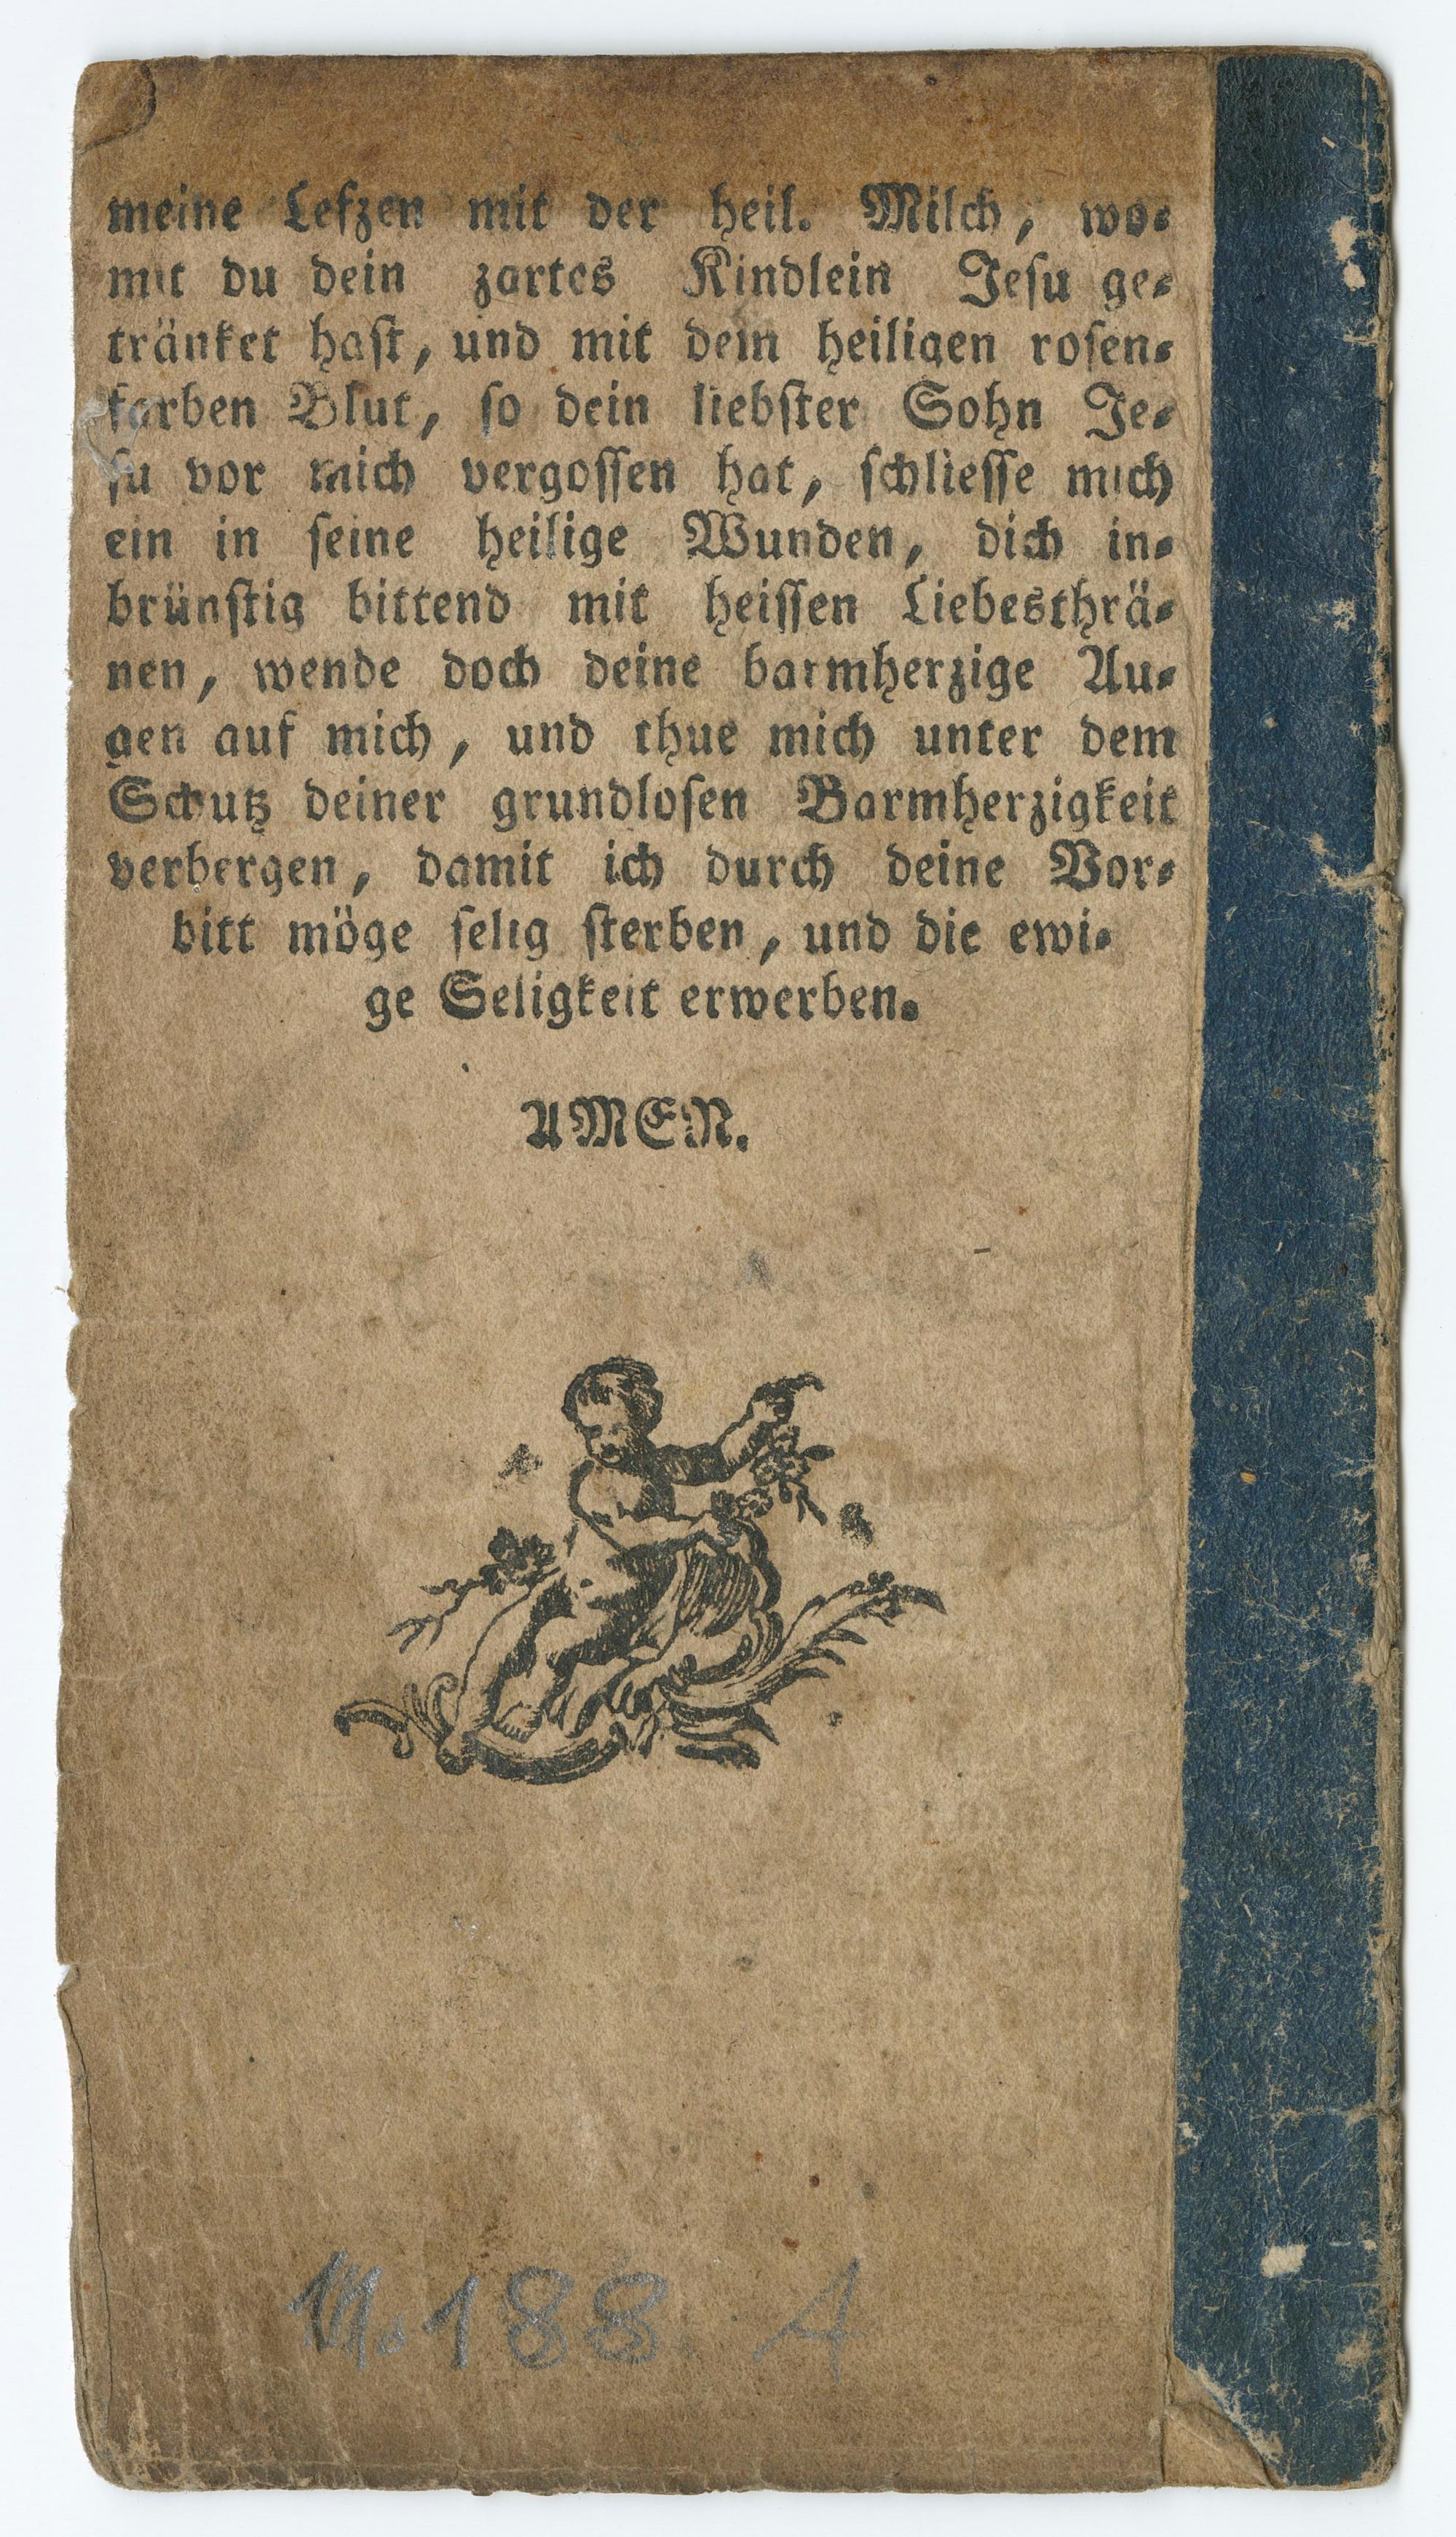 meine Lefzen mit der heil. Milch, wo⸗
mit du dein zartes Kindlein Jesu ge⸗
tränket hast, und mit dem heiligen rosen⸗
farben Blut, so dein liebster Sohn Je⸗
su vor mich vergossen hat, schliesse mich
ein in seine heilige Wunden, dich in⸗
brünstig bittend mit heissen Liebesthrä⸗
nen, wende doch deine barmherzige Au⸗
gen auf mich, und thue mich unter dem
Schutz deiner grundlosen Barmherzigkeit
verbergen, damit ich durch deine Vor⸗
bitt möge selig sterben, und die ewi⸗
ge Seligkeit erwerben.
AMEN.
188 A